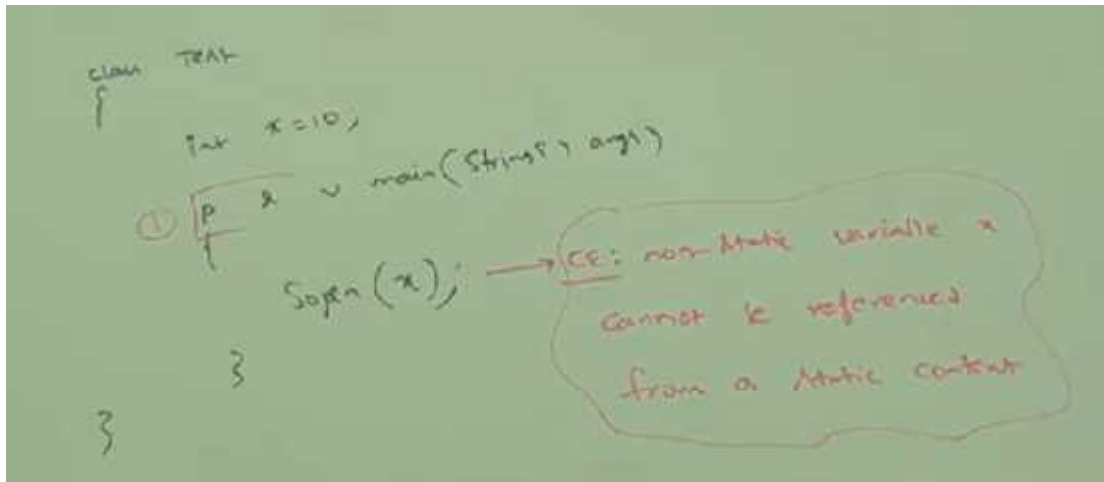 class Test
{
int x=10;
① p s v main(String[] args)
{
Sopln(x); → CE: non-static variable x
cannot be referenced
from a static context
}
}